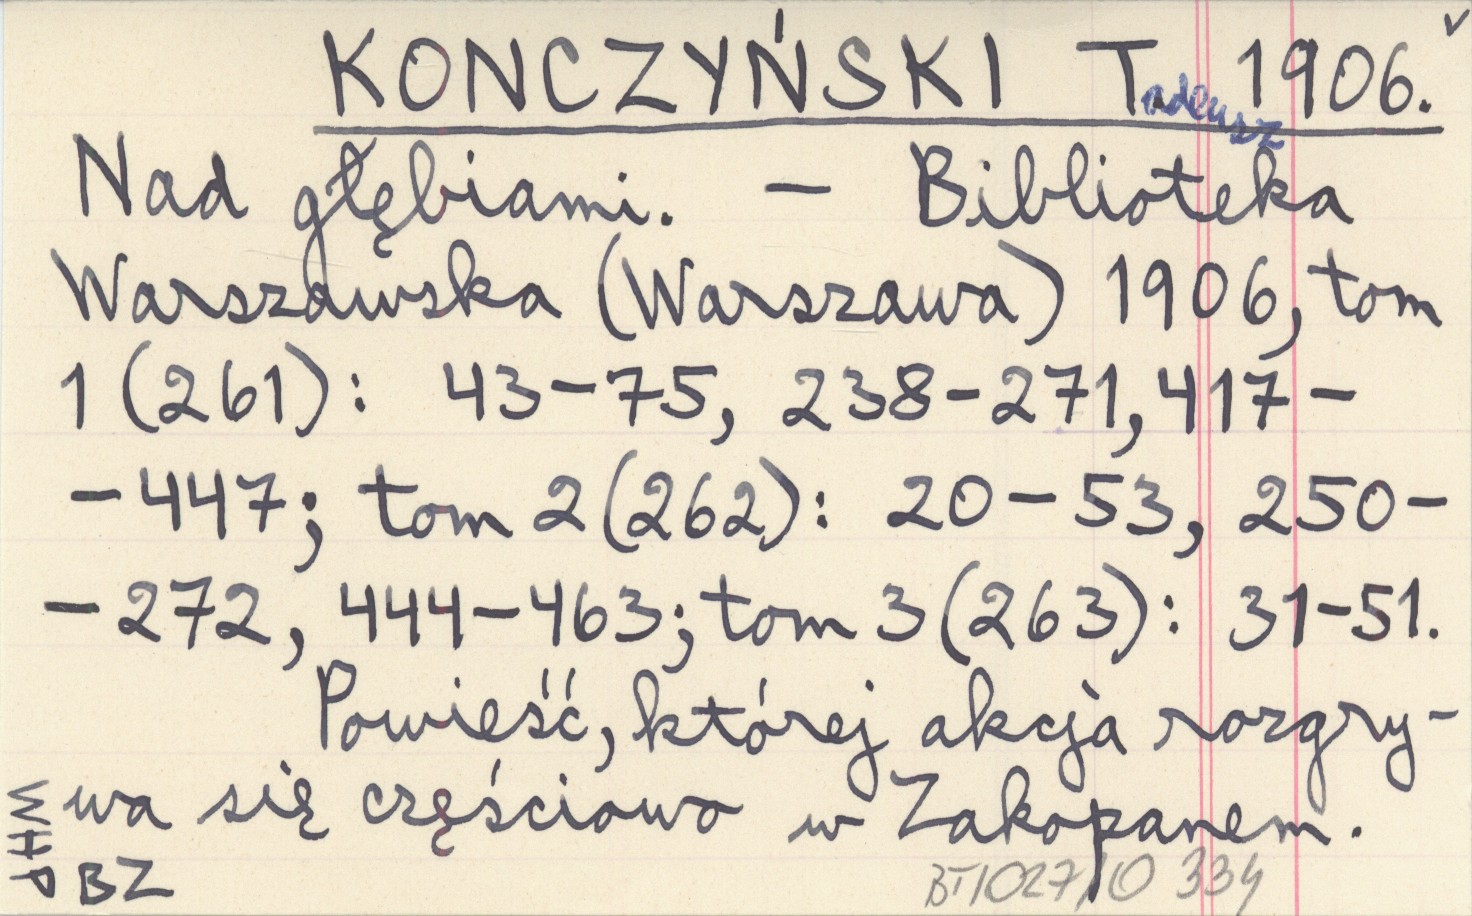 KONCZYŃSKI Tadeusz 1906. v
Nad głębiami. – Biblioteka
Warszawska (Warszawa) 1906, tom
1 (261): 43–75, 238–271, 417–
–447; tom 2 (262): 20–53, 250–
–272, 444–463; tom 3 (263): 31–51.
Powieść, której akcja rozgry-
wa się częściowo w Zakopanem.
WHP
BZ
BT/1027/10 334